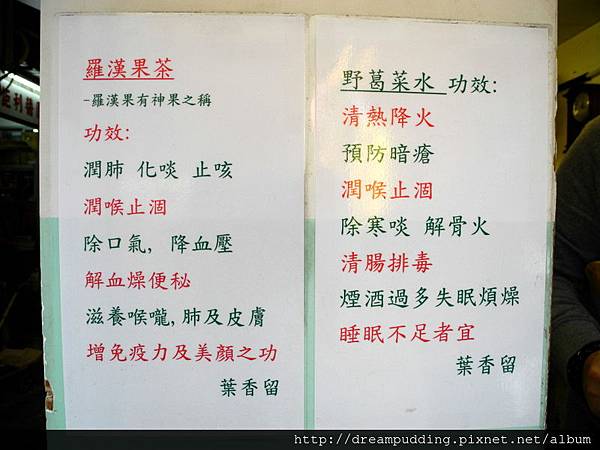 羅漢果茶
-羅漢果有神果之稱
功效:
潤肺 化啖 止咳
潤喉止涸
除口氣, 降血壓
解血燥便秘
滋養喉嚨,肺及皮膚
增免疫力及美顏之功
葉香留
野葛菜水 功效:
清熱降火
預防暗瘡
潤喉止涸
除寒啖 解骨火
清腸排毒
煙酒過多失眠煩燥
睡眠不足者宜
葉香留
http://dreampudding.pixnet.net/album